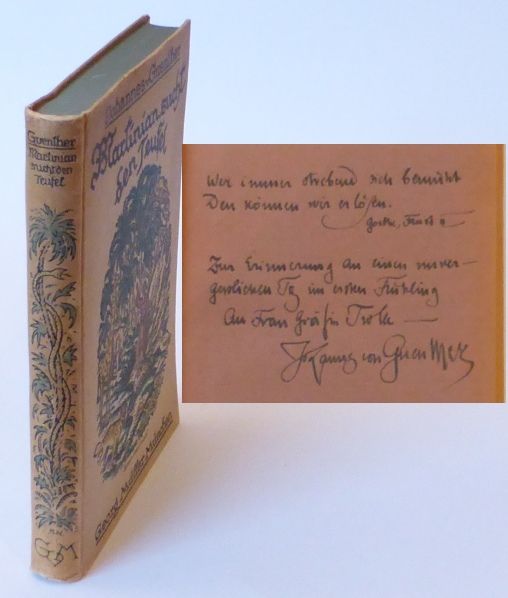 Guenther
Martinian
sucht den
Teufel
G M
Johannes v. Guenther
Martinian sucht
den Teufel
Georg Müller München
Wer immer strebend sich bemüht
Den können wir erlösen.
Goethe, Faust II
Zur Erinnerung an einen unver-
gesslichen Tag im ersten Frühling
An Frau Gräfin
Johannes von Guenther